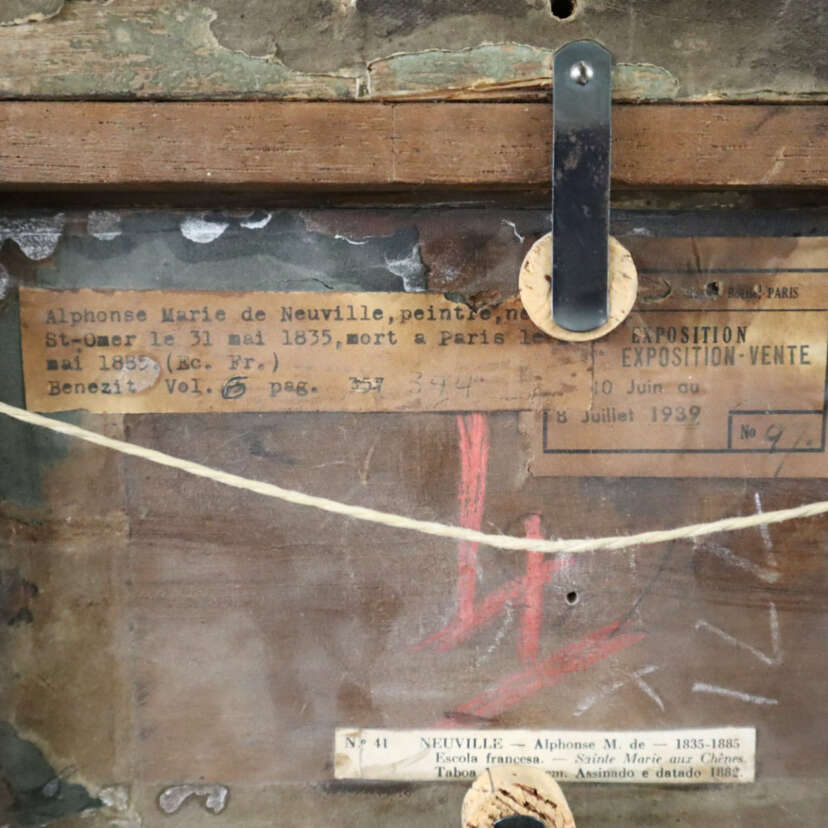 Alphonse Marie de Neuville, peintre, né
St-Omer le 31 mai 1835, mort a Paris le
mai 1885. (Ec. Fr.)
Benezit Vol. 6 pag. 357 344
PARIS
EXPOSITION
EXPOSITION-VENTE
10 Juin au
8 Juillet 1939
No 97
N.º 41 NEUVILLE — Alphonse M. de — 1835-1885
Escola francesa. — Sainte Marie aux Chênes.
Taboa cm. Assinado e datado 1882.